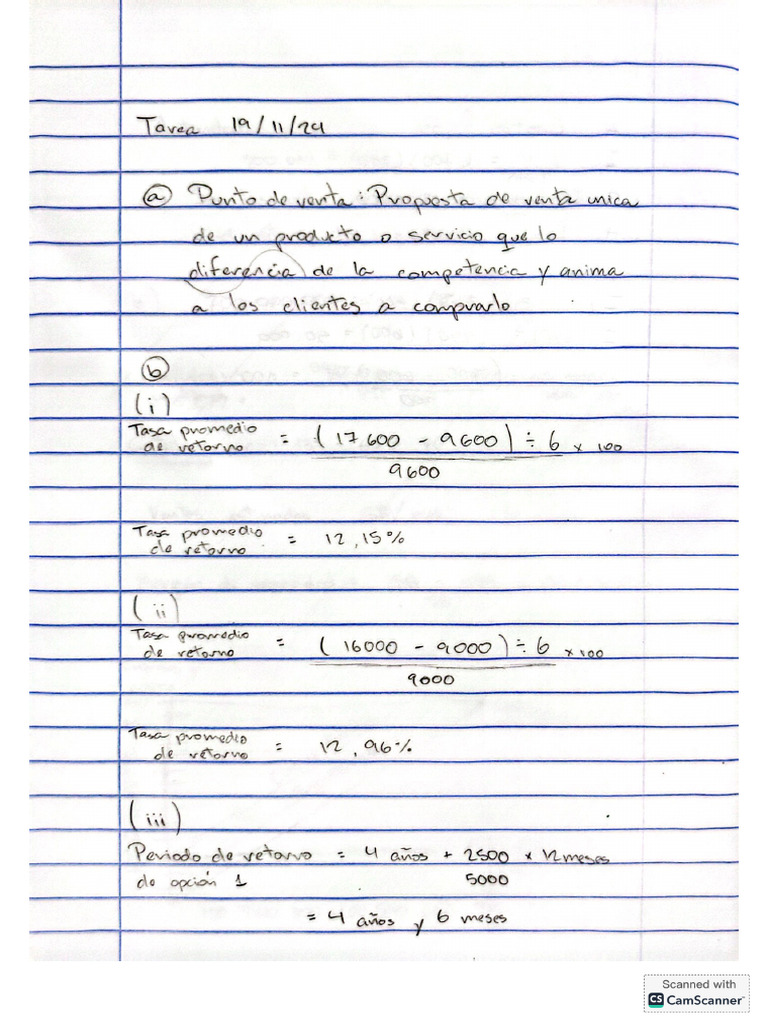 Tarea 19/11/24
(a) Punto de venta: Propuesta de venta unica
de un producto o servicio que lo
diferencia de la competencia y anima
a los clientes a comprarlo
(b)
(i)
Tasa promedio de retorno = (17600 - 9600) ÷ 6 x 100
9600
Tasa promedio de retorno = 12,15%
(ii)
Tasa promedio de retorno = (16000 - 9000) ÷ 6 x 100
9000
Tasa promedio de retorno = 12,96%
(iii)
Periodo de retorno = 4 años + 2500 x 12 meses
de opción 1 5000
= 4 años y 6 meses
Scanned with
CS CamScanner